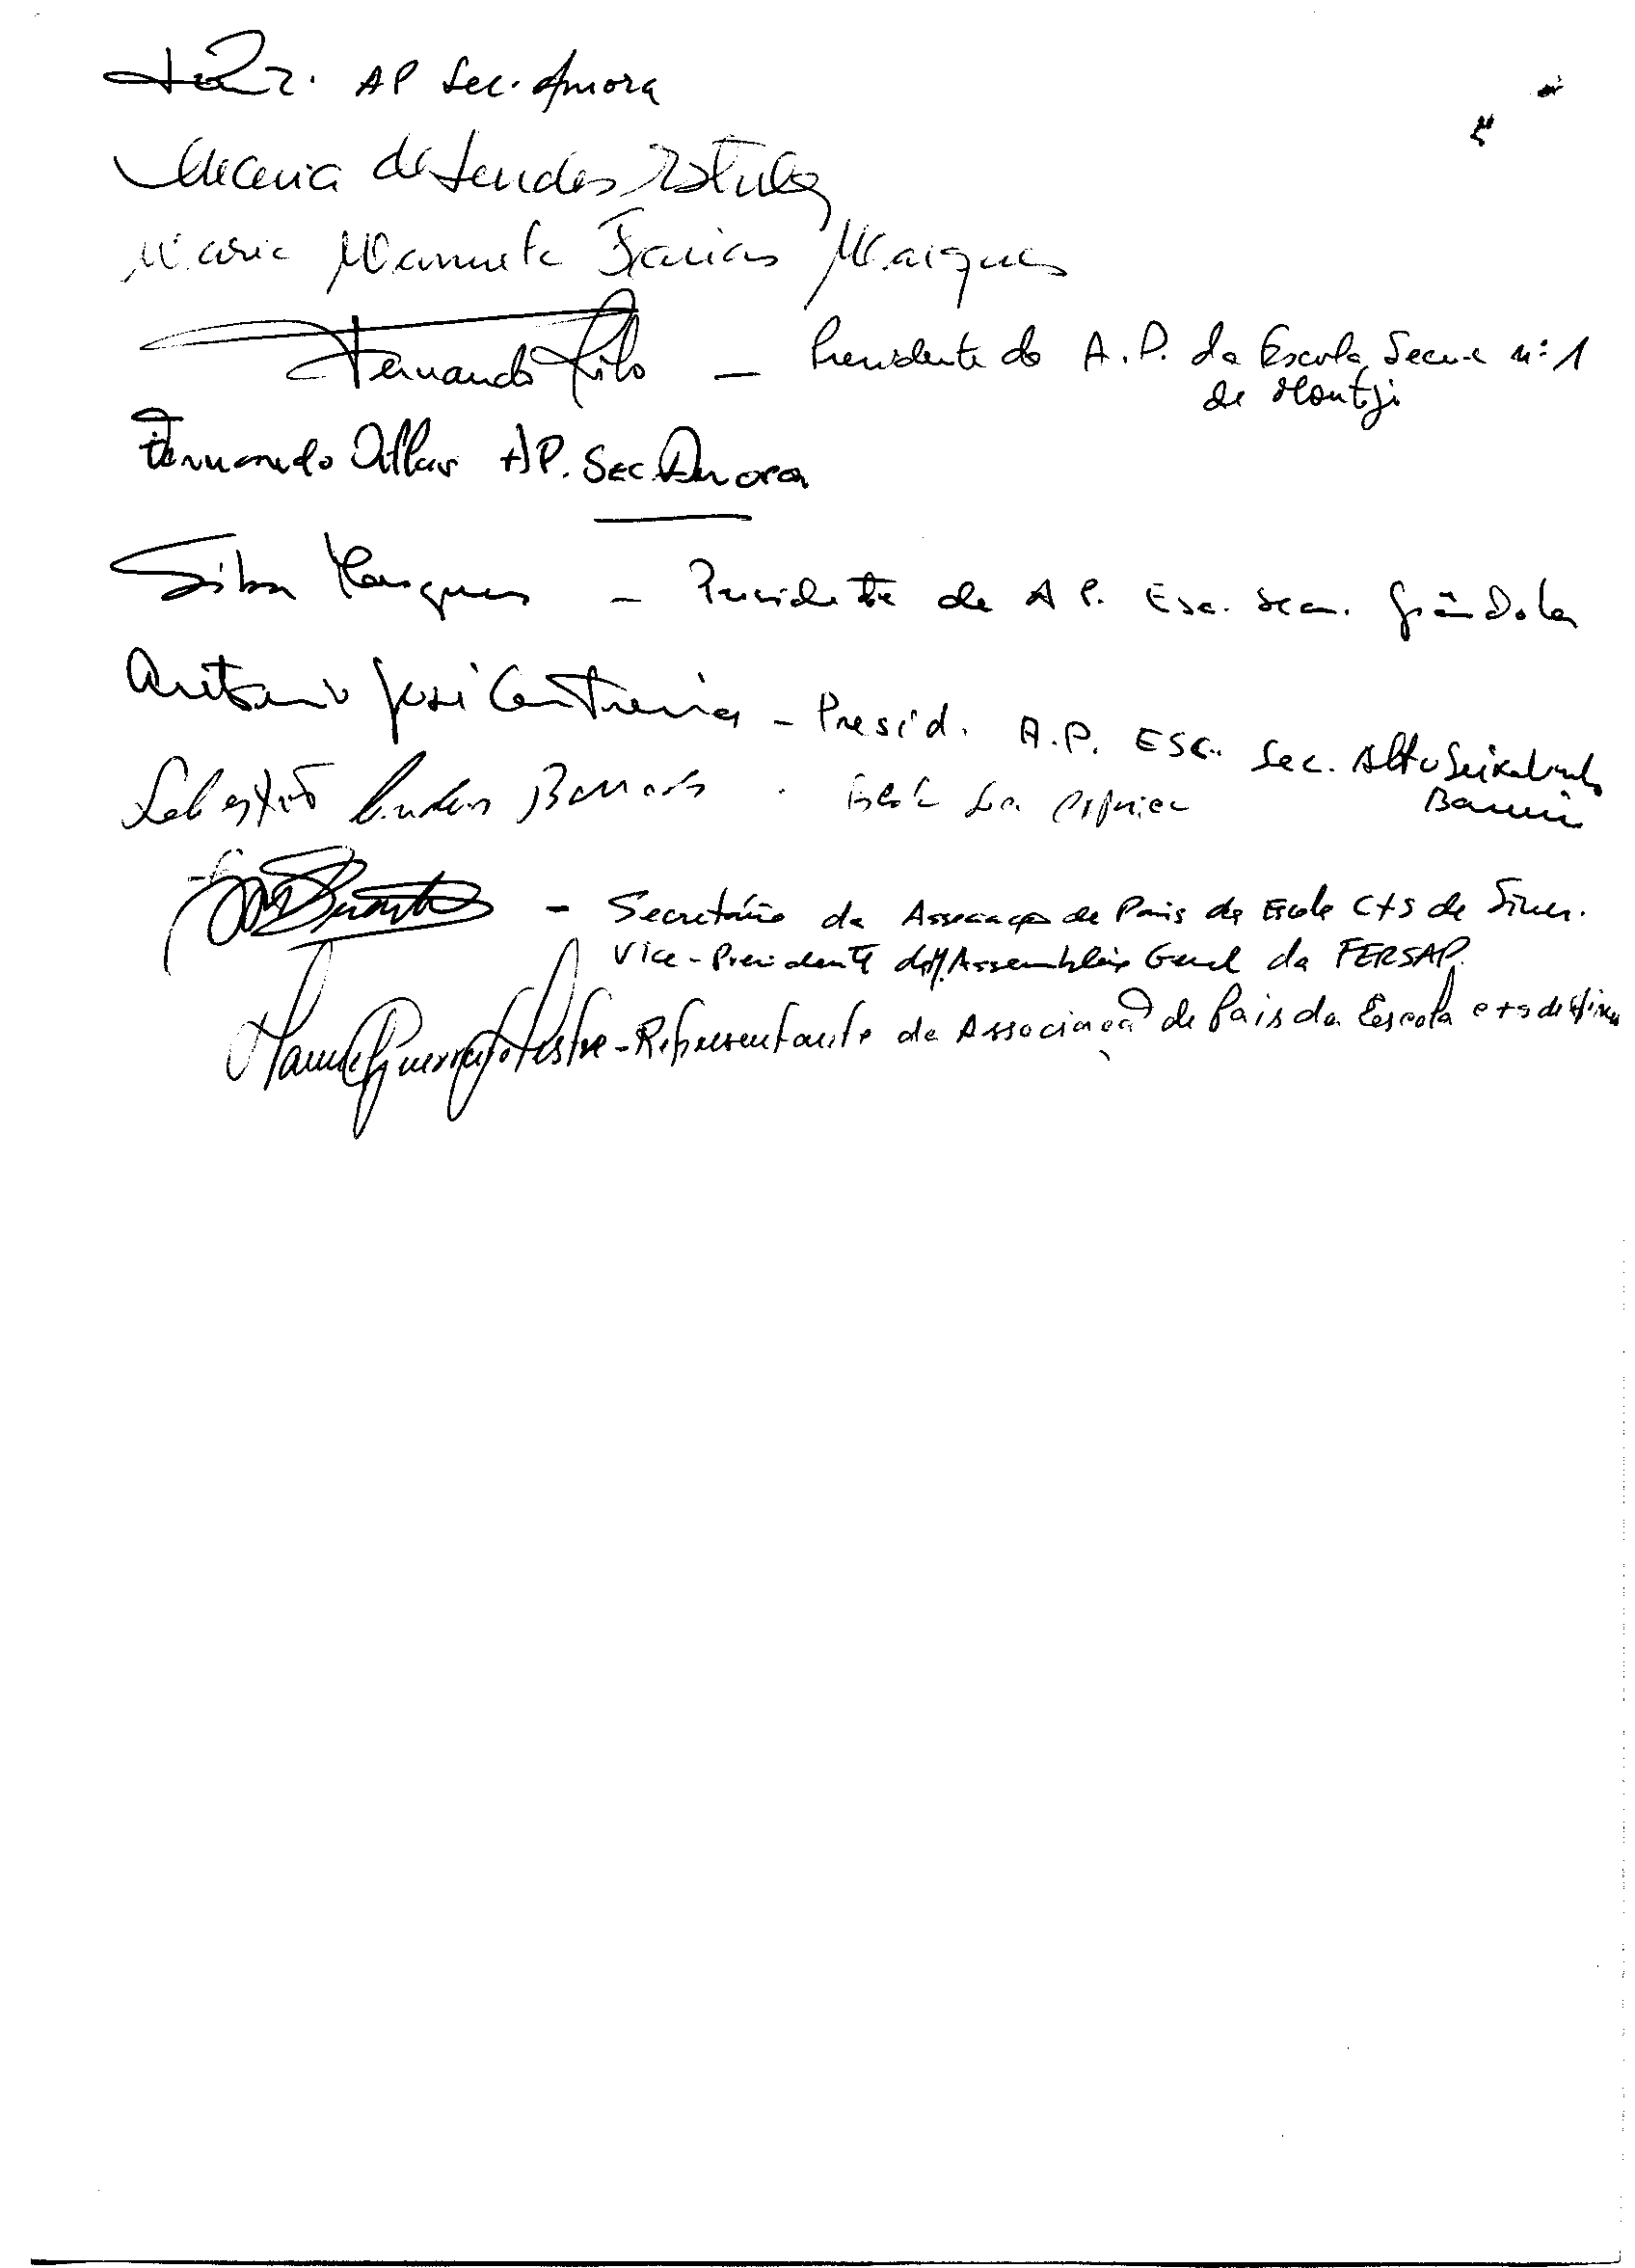 AP Sec. Amora
Maria de Lurdes
Maria Manuela Farias Marques
Fernando — Presidente do A.P. da Escola Secun. nº 1
de Montijo
Fernando AP. Sec. Amora
Silva Marques — Presidente da A P. Esc. Sec. Grândola
António José Contreiras - Presid. A.P. Esc. Sec. Alto Seixalinho
Sebastião Barros . Barreiro
- Secretário da Associação de Pais da Escola C+S de Sines.
Vice-Presidente da M. Assembleia Geral da FERSAP.
Manuel Guerreiro - Representante da Associação de Pais da Escola C+S de Sines